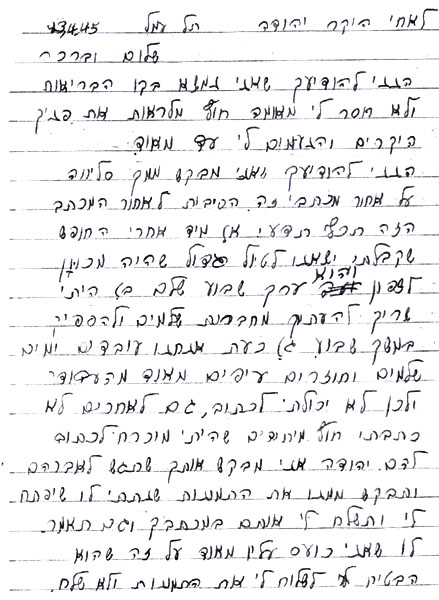 לאחי היקר יהודה תל עמל 13.4.45
שלום וברכה
הנני להודיעך שאני נמצא בקו הבריאות
ולא חסר לי מאומה חוץ מלראות את פניך
היקרים והנעימים לי עד מאוד.
הנני להודיעך ואני מבקש ממך סליחה
על אחור מכתבי זה. הסיבות לאחור המכתב
הזה תכף תדעי. א) מיד אחרי החופש
שקבלתי יצאנו לטיול גדול שהיה מכוון
לצפון והוא ערך שבוע שלם ב) הייתי
צריך להעתיק מחברות שלמים ולהספיק
במשך שבוע. ג) כעת אנחנו עובדים ימים
שלמים וחוזרים עיפים מאוד מהעבודה
ולכן לא יכולתי לכתוב, גם לאחרים לא
כתבתי חוץ מיחידים שהייתי מוכרח לכתוב
להם. יהודה אני מבקש אותך שתגש לאברהם
ותבקש ממנו את התמונות שנתתי לו שיפתח
לי ותשלח לי אותם במכתבך וגם תאמר
לו שאני כועס עליו מאוד על זה שהוא
הבטיח לי לשלוח לי את התמונות ולא שלח.